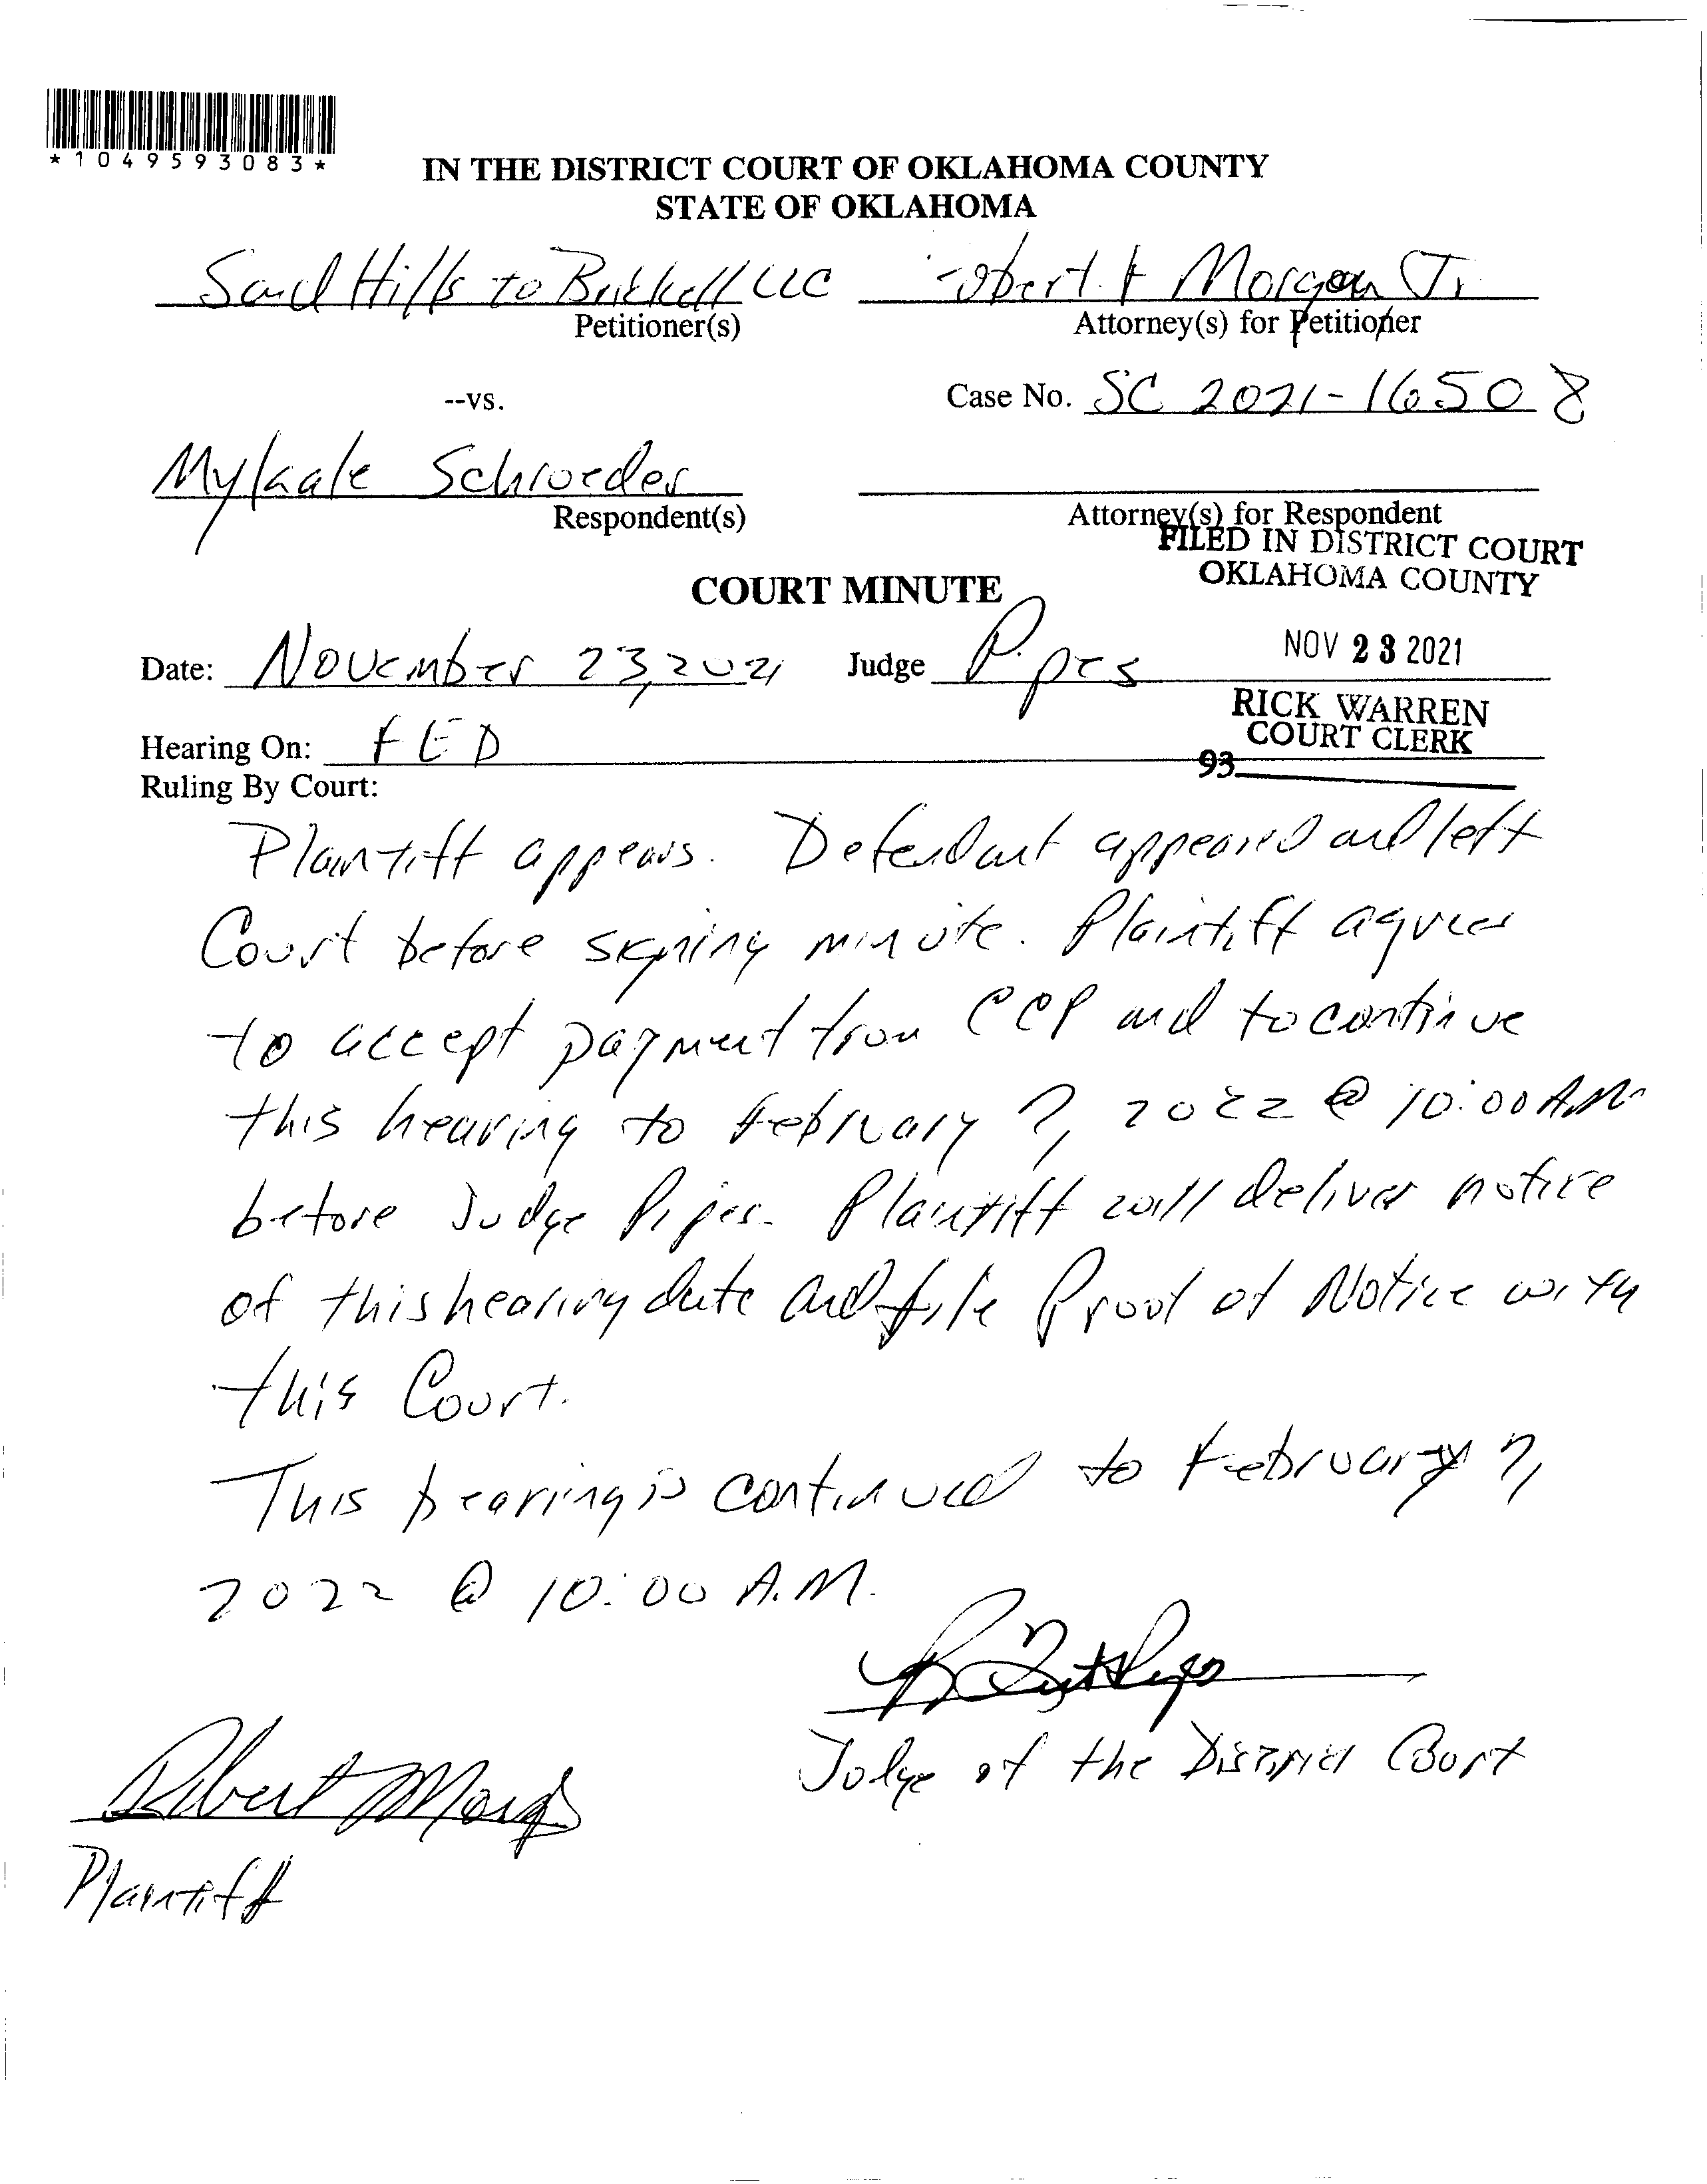 *1049593083*
IN THE DISTRICT COURT OF OKLAHOMA COUNTY
STATE OF OKLAHOMA
Sand Hills to Brickell LLC
obert F Morgan Jr
Petitioner(s)
Attorney(s) for Petitioner
--vs.
Case No. SC 2021-16508
Mykaale Schroeder
Respondent(s)
Attorney(s) for Respondent
FILED IN DISTRICT COURT
OKLAHOMA COUNTY
COURT MINUTE
Date: November 23, 2021 Judge Pipes
NOV 23 2021
RICK WARREN
COURT CLERK
Hearing On: FED
93
Ruling By Court:
Plaintiff appears. Defendant appeared and left
Court before signing minute. Plaintiff agrees
to accept payment from CCP and to continue
this hearing to February 7, 2022 @ 10:00 AM
before Judge Pipes. Plaintiff will deliver notice
of this hearing date and file Proof of Notice with
this Court.
This hearing is continued to February 7,
2022 @ 10:00 A.M.
Judge of the District Court
Robert Morg
Plaintiff